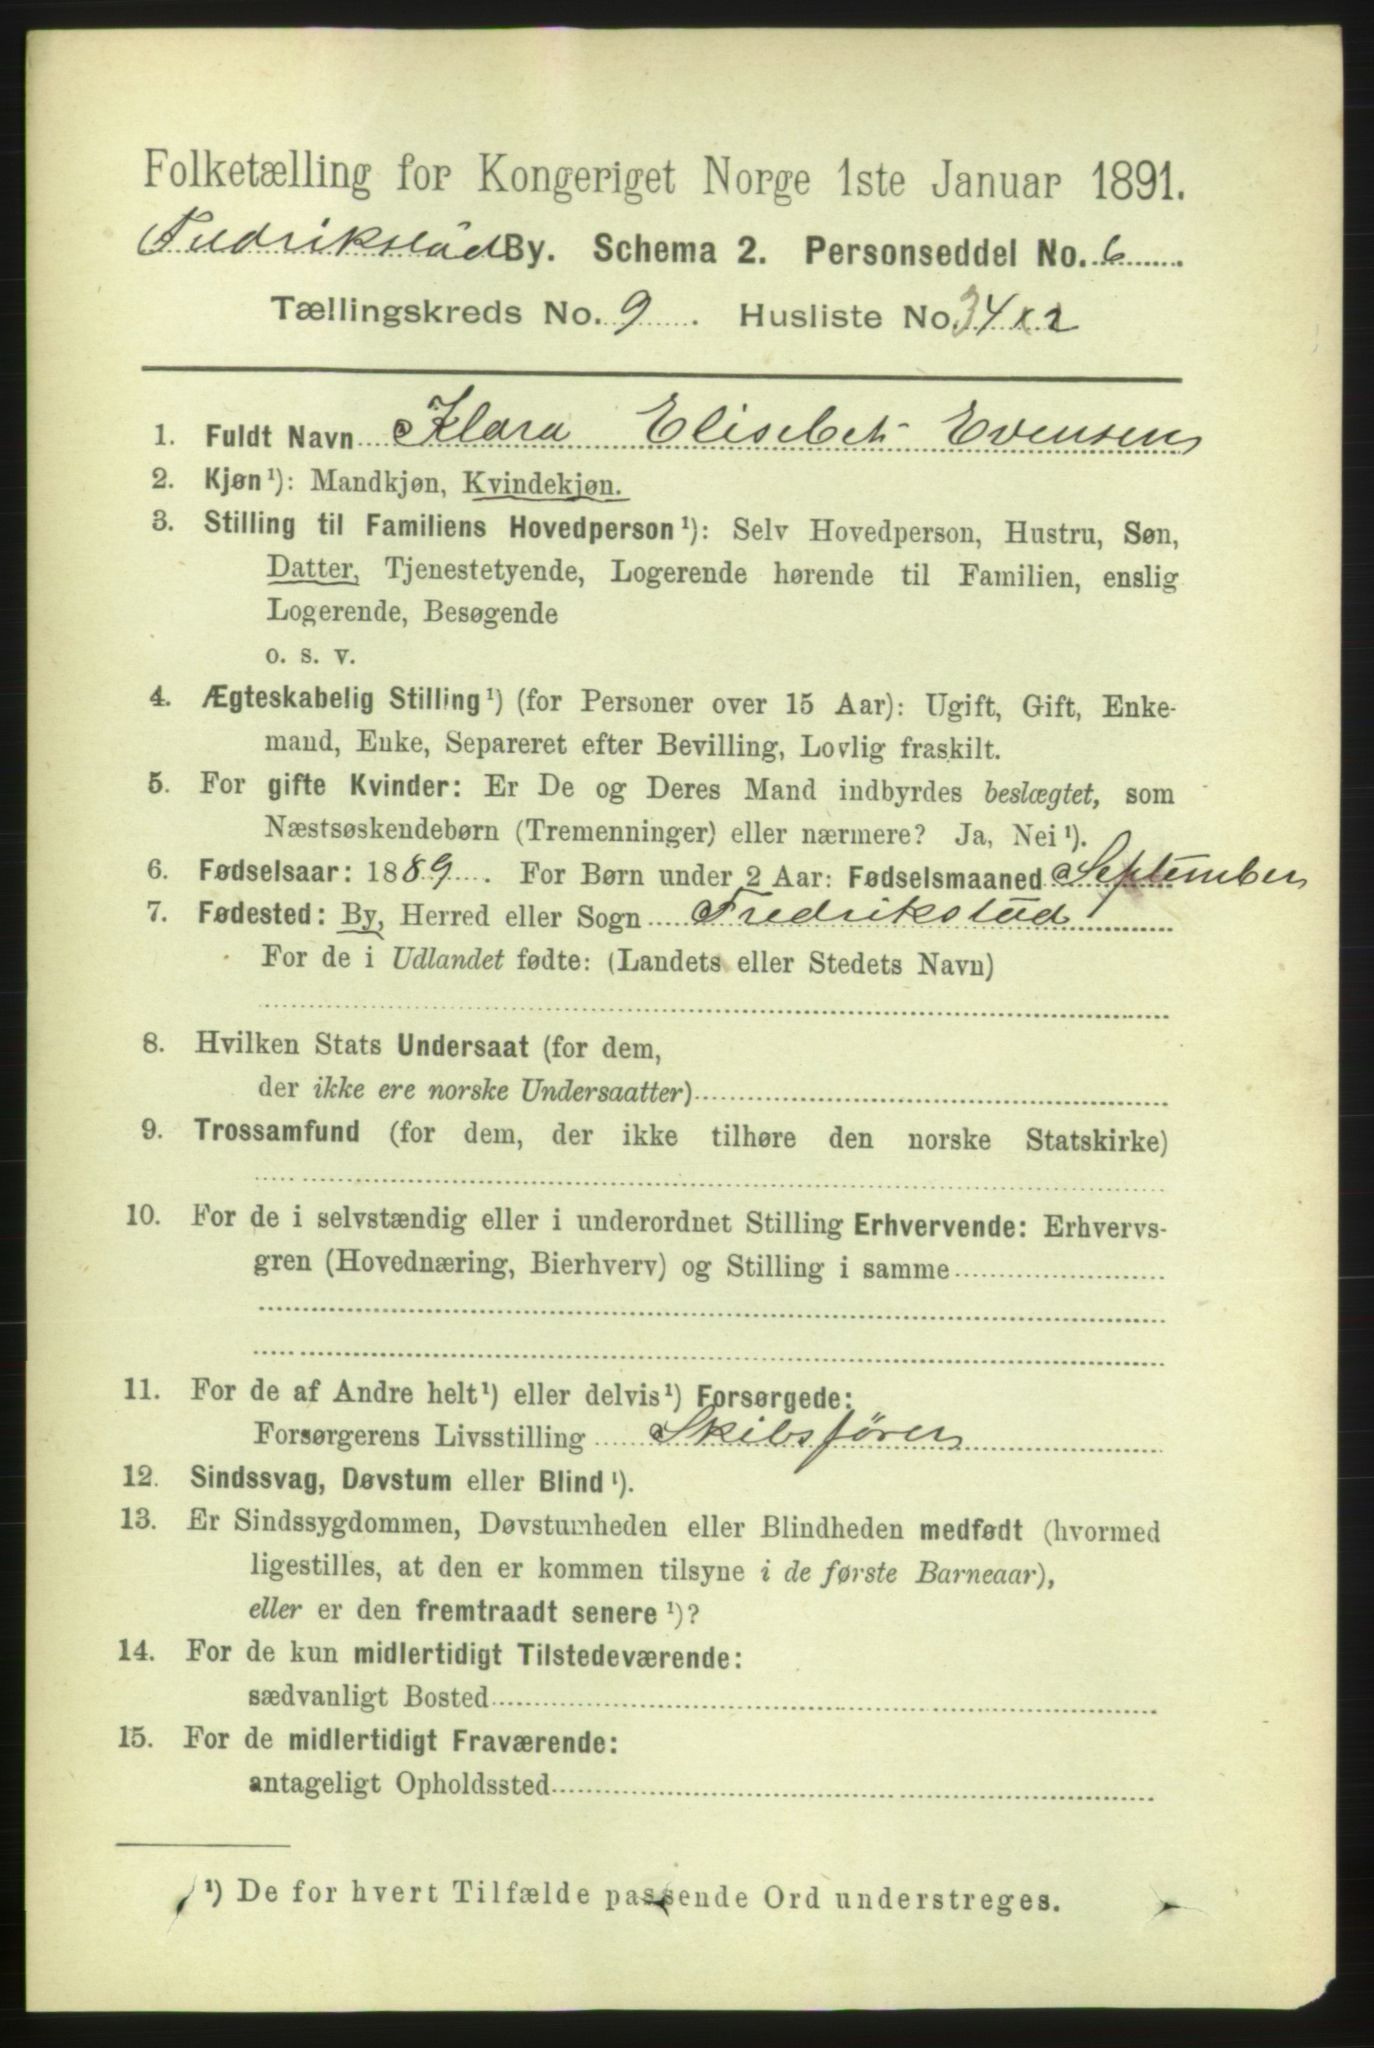 Folketælling for Kongeriget Norge 1ste Januar 1891.
Fredrikstad By. Schema 2. Personseddel No. 6
Tællingskreds No. 9. Husliste No. 34
1. Fuldt Navn Klara Elisebet Evensen
2. Kjøn¹): Mandkjøn, Kvindekjøn.
3. Stilling til Familiens Hovedperson¹): Selv Hovedperson, Hustru, Søn,
Datter, Tjenestetyende, Logerende hørende til Familien, enslig
Logerende, Besøgende
o. s. v.
4. Ægteskabelig Stilling¹) (for Personer over 15 Aar): Ugift, Gift, Enke-
mand, Enke, Separeret efter Bevilling, Lovlig fraskilt.
5. For gifte Kvinder: Er De og Deres Mand indbyrdes beslægtet, som
Næstsøskendebørn (Tremenninger) eller nærmere? Ja, Nei¹).
6. Fødselsaar: 1889. For Børn under 2 Aar: Fødselsmaaned September
7. Fødested: By, Herred eller Sogn Fredrikstad
For de i Udlandet fødte: (Landets eller Stedets Navn)
8. Hvilken Stats Undersaat (for dem,
der ikke ere norske Undersaatter)
9. Trossamfund (for dem, der ikke tilhøre den norske Statskirke)
10. For de i selvstændig eller i underordnet Stilling Erhvervende: Erhvervs-
gren (Hovednæring, Bierhverv) og Stilling i samme
11. For de af Andre helt¹) eller delvis¹) Forsørgede:
Forsørgerens Livsstilling Skibsfører
12. Sindssvag, Døvstum eller Blind¹).
13. Er Sindssygdommen, Døvstumheden eller Blindheden medfødt (hvormed
ligestilles, at den er kommen tilsyne i de første Barneaar),
eller er den fremtraadt senere¹)?
14. For de kun midlertidigt Tilstedeværende:
sædvanligt Bosted
15. For de midlertidigt Fraværende:
antageligt Opholdssted
¹) De for hvert Tilfælde passende Ord understreges.